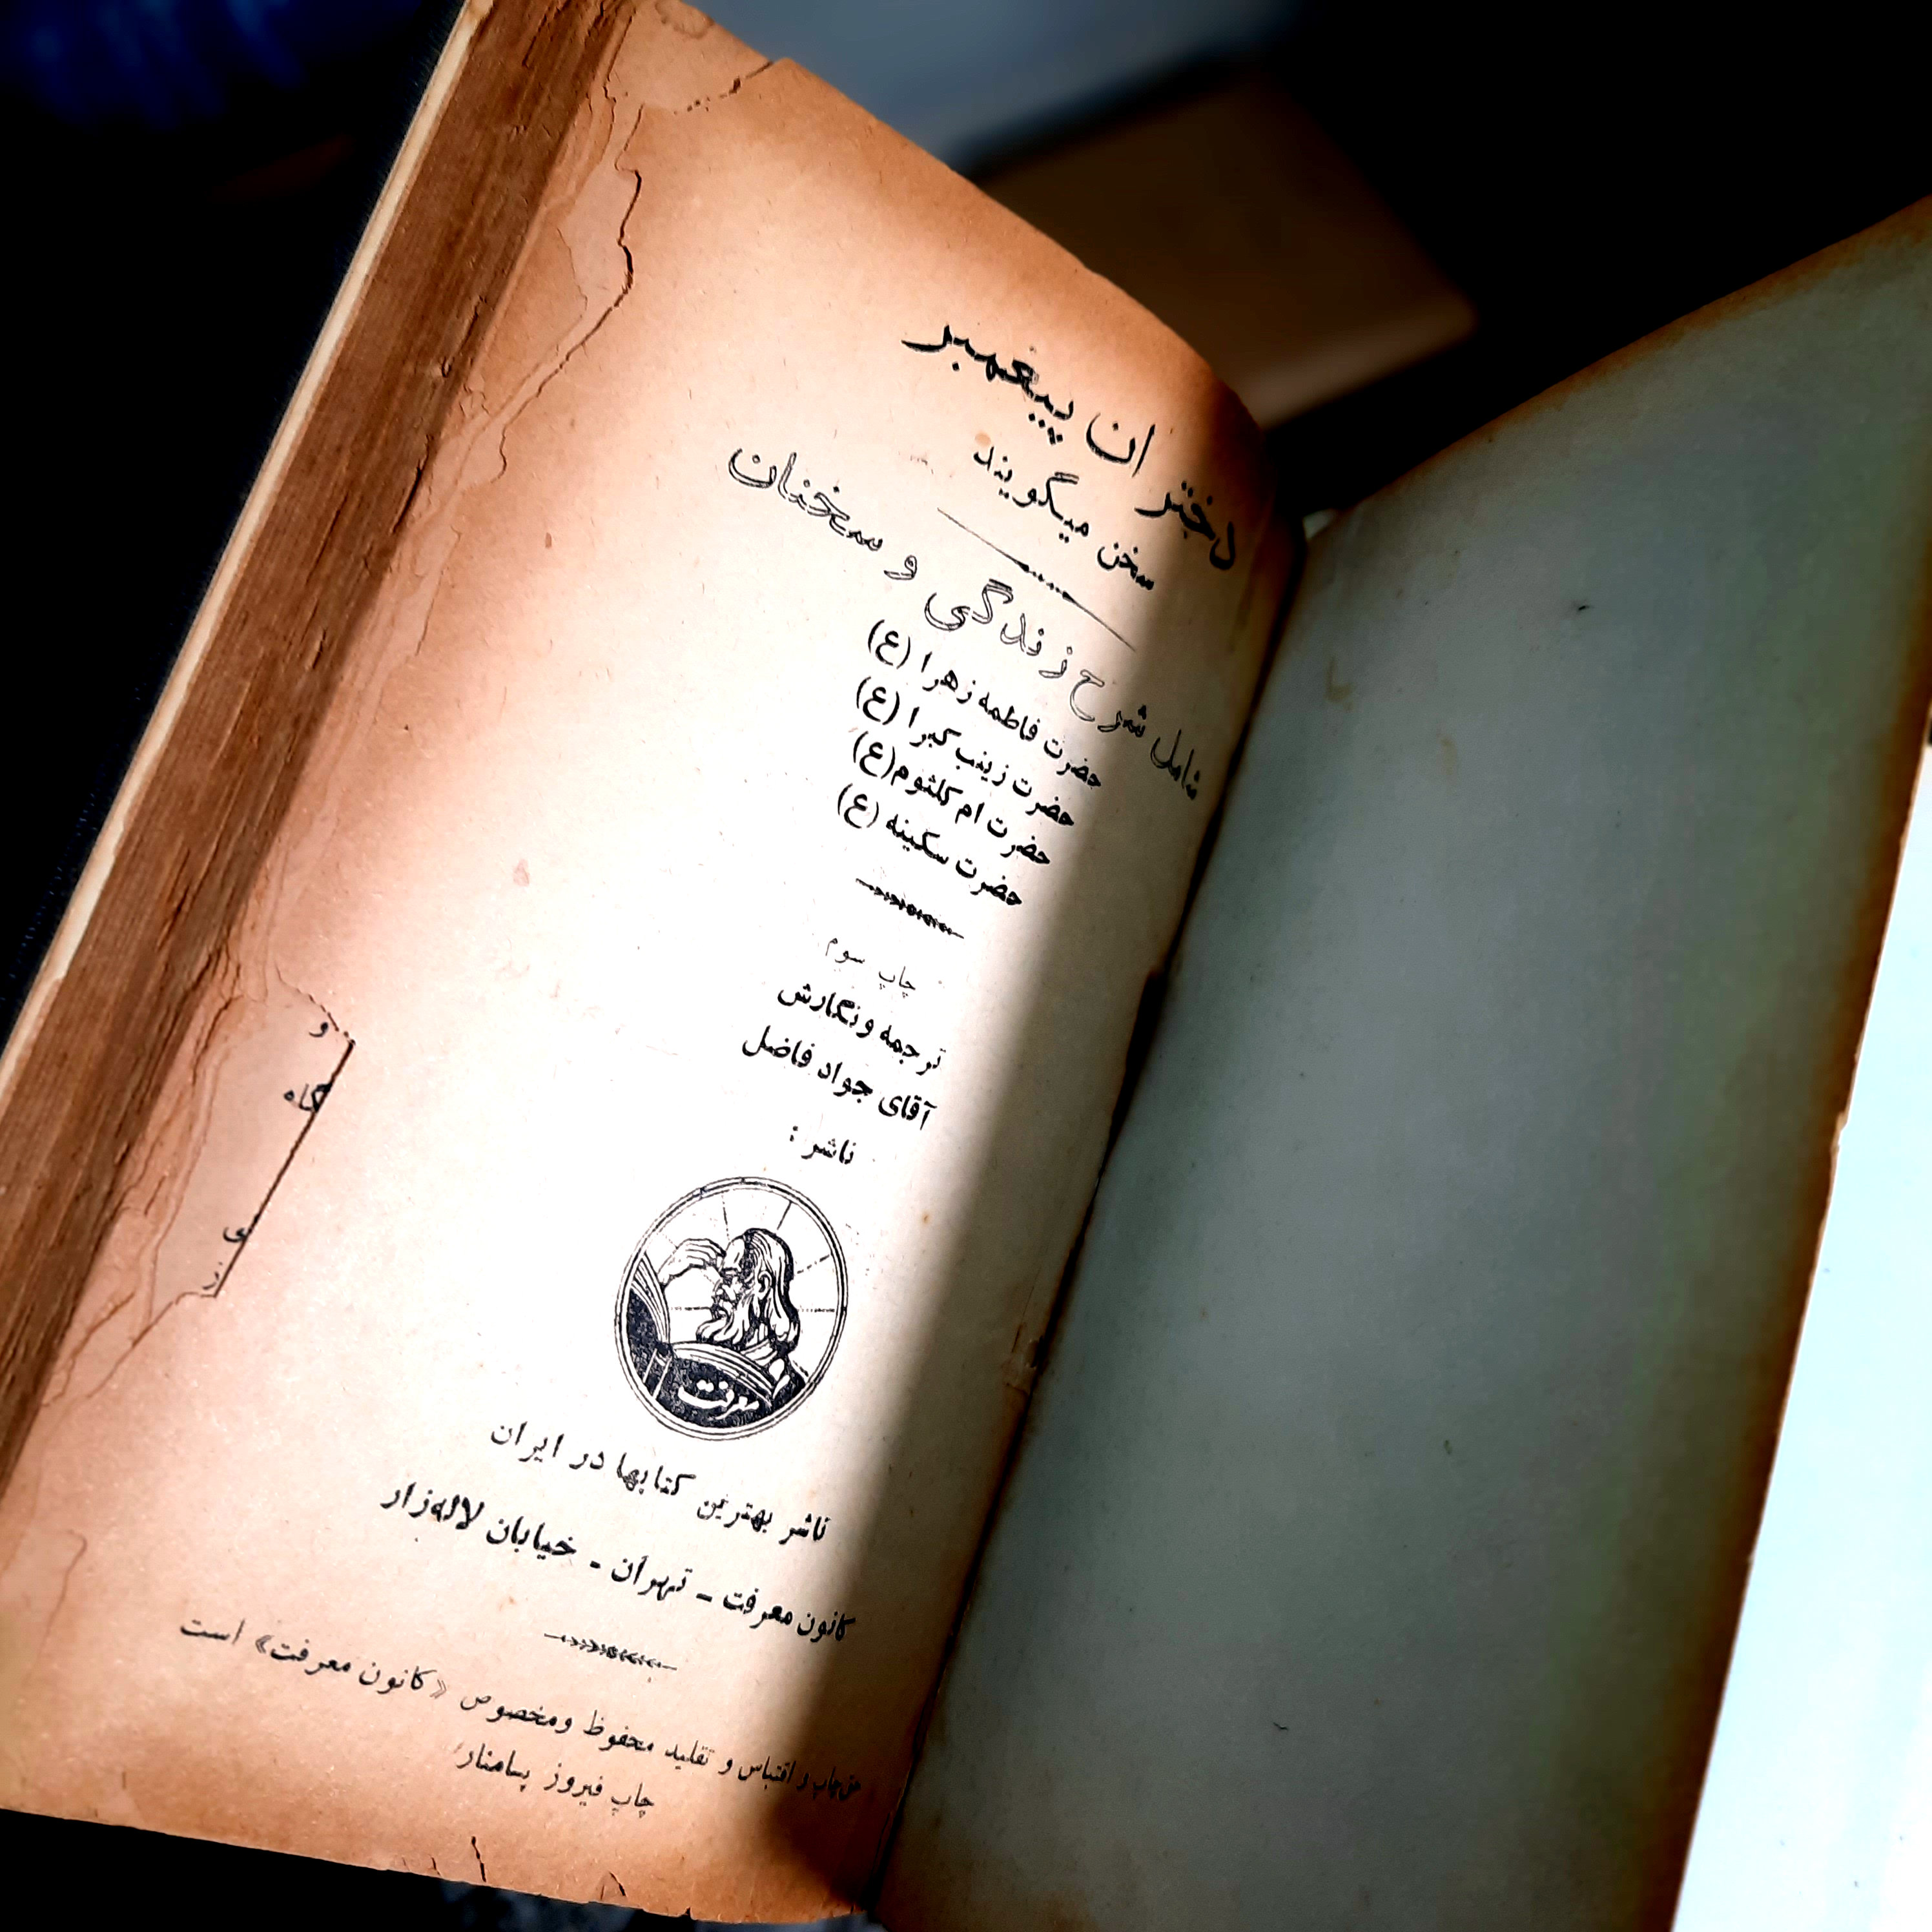 دختران پیغمبر
سخن میگویند
شامل شرح زندگی و سخنان
حضرت فاطمه زهرا (ع)
حضرت زینب کبرا (ع)
حضرت ام کلثوم (ع)
حضرت سکینه (ع)
چاپ سوم
ترجمه ونگارش
آقای جواد فاضل
ناشر :
معرفت
ناشر بهترین کتابها در ایران
کانون معرفت - تهران - خیابان لاله‌زار
حق چاپ و اقتباس و تقلید محفوظ ومخصوص «کانون معرفت» است
چاپ فیروز پامنار
و
گاه
ی